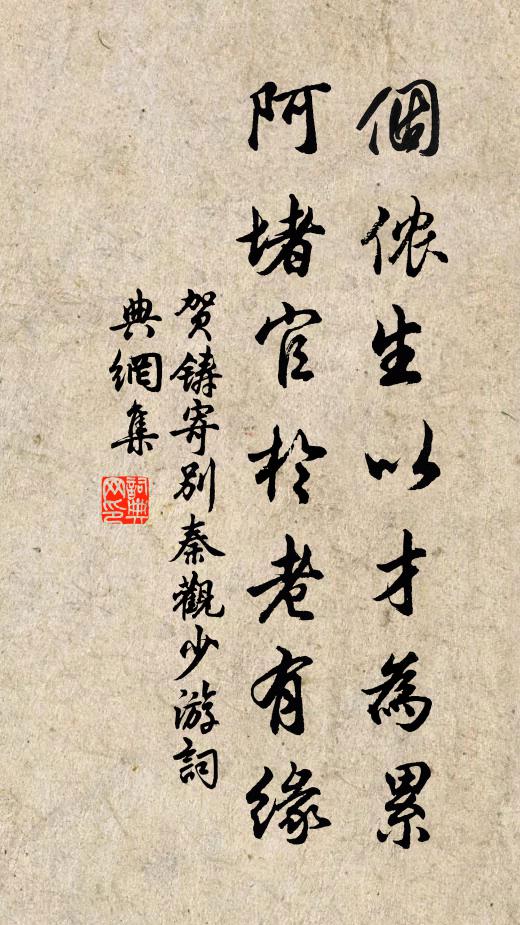 個侬生以才為累
阿堵官於老有緣
贺鑄寄别秦觀少游詞
典網集
詞典网印